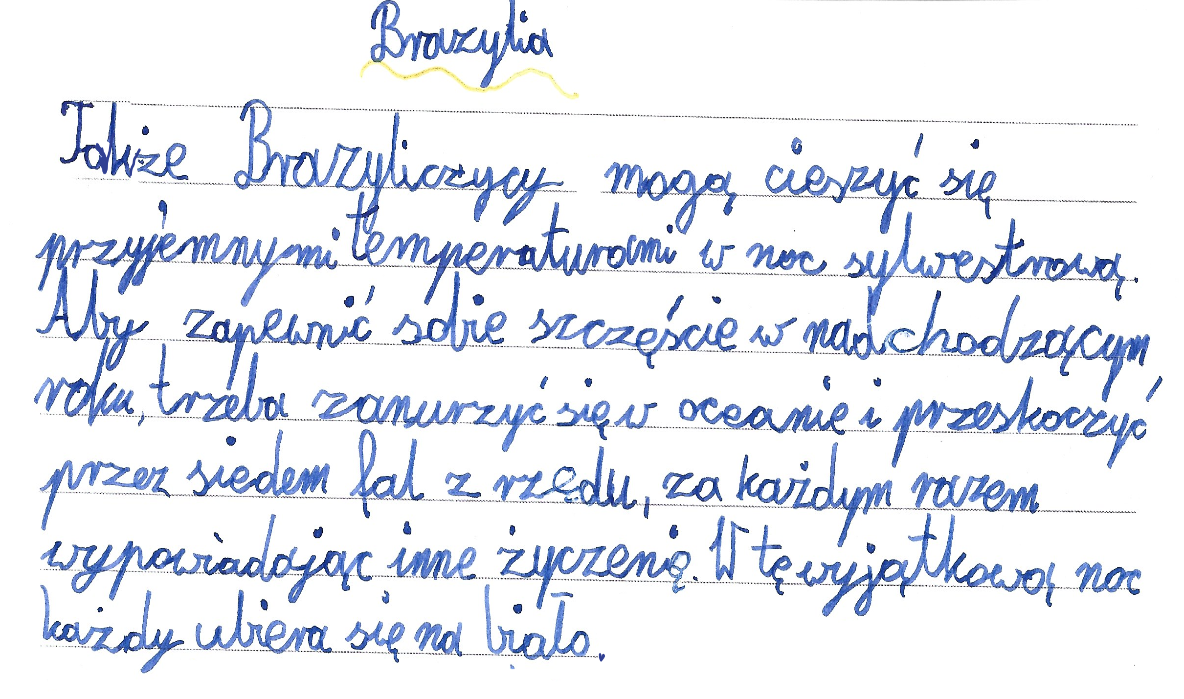 Brazylia
Także Brazyliczycy mogą cieszyć się
przyjemnymi temperaturami w noc sylwestrową.
Aby zapewnić sobie szczęście w nadchodzącym
roku, trzeba zanurzyć się w oceanie i przeskoczyć
przez siedem fal z rzędu, za każdym razem
wypowiadając inne życzenię. W tę wyjątkową noc
każdy ubiera się na biało.